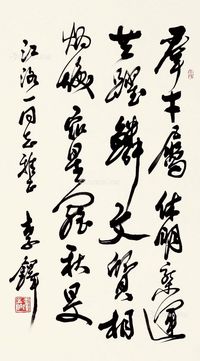 群才属休明乘运
共跃鳞文质相
炳焕众星罗秋旻
江海一同志雅正
李铎